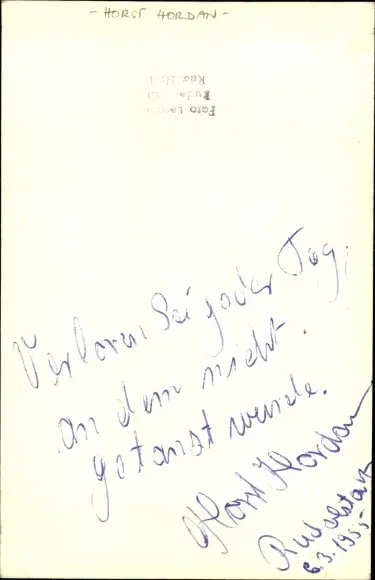 - HORST HORDAN -
Foto
Verloren Sei jeder Tag,
an dem nicht
getanzt wurde.
Horst Hordan
Rudolstadt
6.3.1955